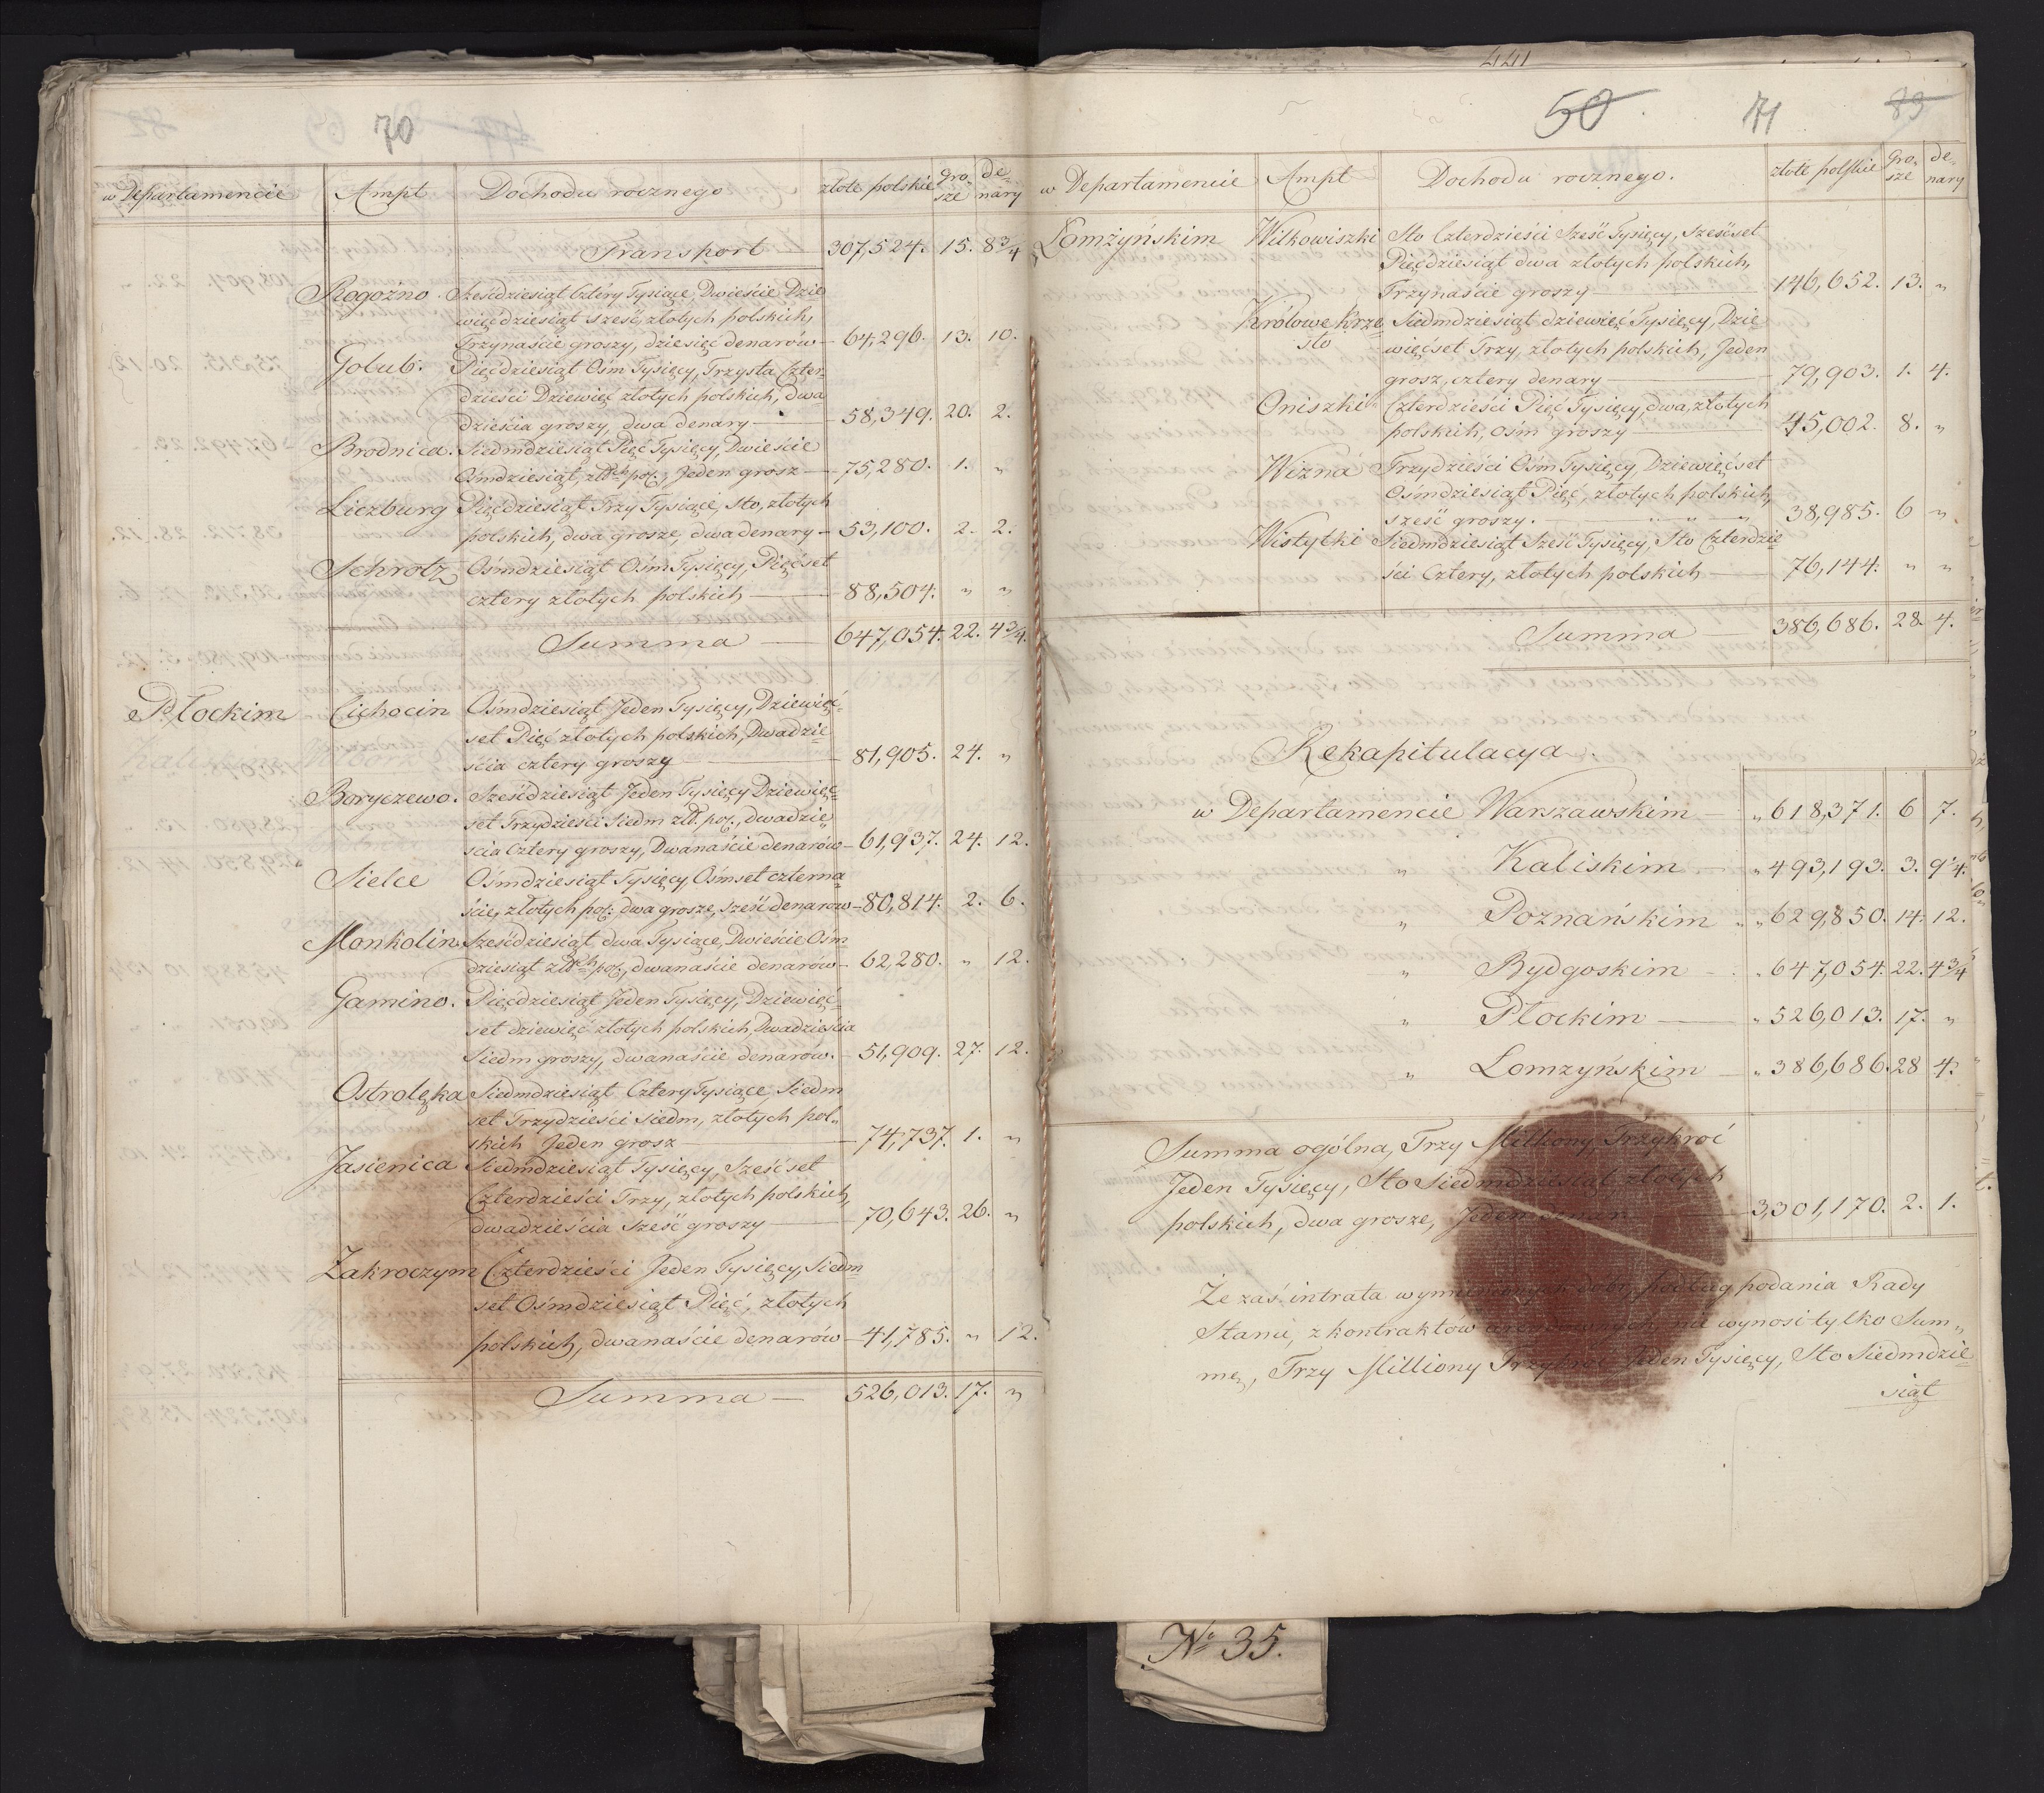 70
w Departamencie Ampt Dochodu rocznego złote polskie gro- sze de= nary
Transport 307,524. 15. 8 3/4
Rogoźno. Sześćdziesiąt Cztéry Tysiące, Dwieście Dzie
więćdziesiąt sześć, złotych polskich,
Trzynaście groszy, dziesięć denarów 64,296. 13. 10.
Golub. Pięćdziesiąt Ośm Tysięcy, Trzysta Czter=
dzieści Dziewięć złotych polskich, dwa
dzieścia groszy, dwa denary 58,349. 20. 2.
Brodnica. Siedmdziesiąt Pięć Tysięcy, Dwieście
Ośmdziesiąt, złtch pol:, Jeden grosz 75,280. 1. "
Liczburg Pięćdziesiąt Trzy Tysiące, sto, złotych
polskich, dwa grosze, dwa denary 53,100. 2. 2.
Schrotz Ośmdziesiąt Ośm Tysięcy, Pięćset
cztery złotych polskich 88,504. " "
Summa 647,054. 22. 4 3/4.
Płockim Cichocin Ośmdziesiąt Jeden Tysięcy, Dziewięć=
set Pięć złotych polskich, Dwadzie=
ścia cztery groszy 81,905. 24. "
Boryczewo. Sześćdziesiąt Jeden Tysięcy Dziewięć=
set Trzydzieści Siedm złt. pol., dwadzie
ścia Cztery groszy, Dwanaście denarów 61,937. 24. 12.
Sielce Ośmdziesiąt Tysięcy Ośmset czterna=
ście, złotych pol: dwa grosze, sześć denarów 80,814. 2. 6.
Monkolin Sześćdziesiąt dwa Tysiące, Dwieście Ośm
dziesiąt złtch pol., dwanaście denarów 62,280. " 12.
Gamino. Pięćdziesiąt Jeden Tysięcy, Dziewięć=
set dziewięć złotych polskich, Dwadzieścia
Siedm groszy, dwanaście denarów. 51,909. 27. 12.
Ostrołęka Siedmdziesiąt Cztery Tysiące, Siedm
set Trzydzieści Siedm, złotych pol=
skich Jeden grosz 74,737. 1. "
Jasienica Siedmdziesiąt Tysięcy, Sześćset
Czterdzieści Trzy, złotych polskich,
dwadzieścia Sześć groszy 70,643. 26. "
Zakroczym Czterdzieści Jeden Tysięcy, Siedm
set Ośmdziesiąt Pięć, złotych
polskich, dwanaście denarów 41,785. " 12.
Summa 526,013. 17. "
50. 71 83
w Departamencie Ampt Dochodu rocznego. złote polskie gro= sze de= nary
Łomżyńskim Wilkowiszki Sto Czterdzieści Sześć Tysięcy, Sześćset
Pięćdziesiąt dwa złotych polskich,
Trzynaście groszy 146,652. 13. "
Królowe Krze= sło Siedmdziesiąt dziewięć Tysięcy, Dzie
więćset Trzy, złotych polskich, Jeden
grosz, cztery denary 79,903. 1. 4.
Oniszki Czterdzieści Pięć Tysięcy, dwa, złotych
polskich, ośm groszy 45,002. 8. "
Wizna Trzydzieści Ośm Tysięcy, Dziewięćset
Ośmdziesiąt Pięć, złotych polskich,
sześć groszy. 38,985. 6 "
Wistytki Siedmdziesiąt Sześć Tysięcy, Sto Czterdzie=
ści Cztery, złotych polskich 76,144. " "
Summa 386,686. 28. 4.
Rekapitulacya.
w Departamencie Warszawskim " 618,371. 6 7.
" Kaliskim " 493,193. 3. 9 1/4.
" Poznańskim " " 629,850. 14. 12.
" Bydgoskim " 647,054. 22. 4 3/4
" Płockim " 526,013. 17. "
" Łomżyńskim " 386,686. 28 4.
Summa ogólna, Trzy Milliony, Trzykroć
Jeden Tysięcy, Sto Siedmdziesiąt złotych
polskich, dwa grosze, Jeden denar 3,301,170. 2. 1.
Że zaś intrata wymienionych dóbr, podług podania Rady
Stanu, z kontraktów nie wynosi tylko Sum=
mę, Trzy Milliony Trzykroć Jeden Tysięcy, Sto Siedmdzie=
siąt
No 35.